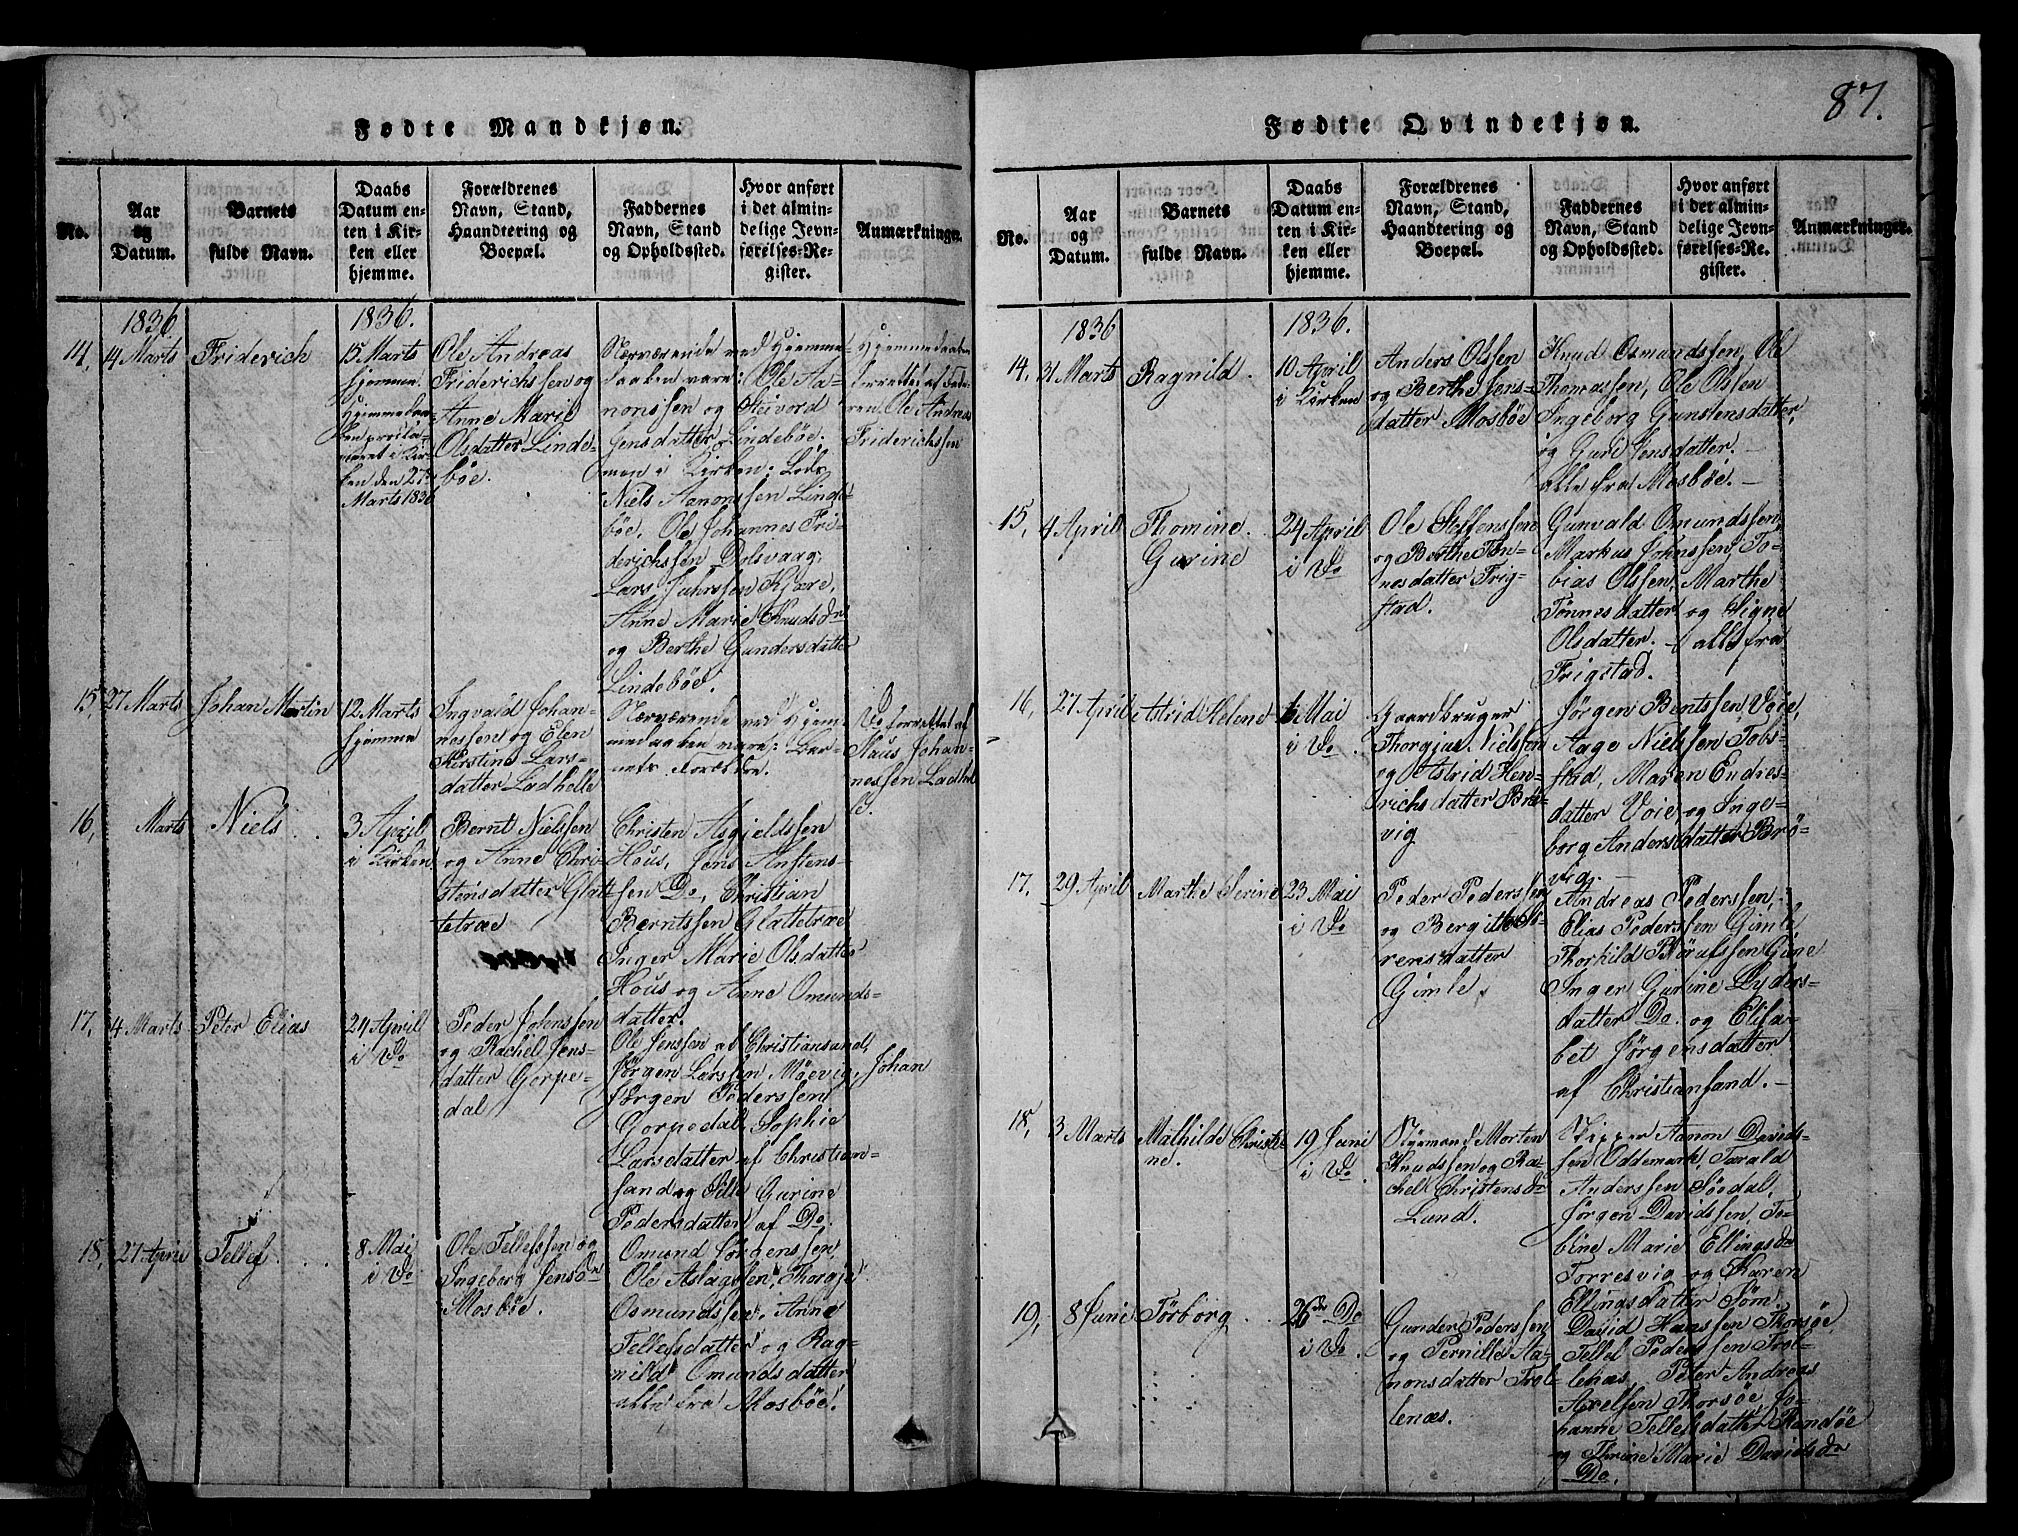 87.
Fødte Mandkjøn.
No.
Aar
og
Datum.
Barnets
fulde Navn.
Daabs
Datum en-
ten i Kir-
ken eller
hjemme.
Forældrenes
Navn, Stand,
Haandtering og
Boepæl.
Faddernes
Navn, Stand
og Opholdssted.
Hvor anført
i det almin-
delige Jevn-
førelses-Re-
gister.
Anmærkninger.
1836
1836.
14, 4 Marts
Friderich
15 Marts
hjemme.
Hjemmedaa-
ben procla-
meret i Kir-
ken den 27de
Marts 1836
Ole Andreas
Friderichssen og
Anne Marie
Olsdatter Linde-
bøe.
Nærværende ved Hjemme-
daaben vare: Ole Aa-
nonssen og Steivord
Jensdatter Lindebøe.
men i Kirken:
Niels Aanonssen Linde-
bøe, Ole Johannes Fri-
derichssen Dolsvaag,
Lars Juhrssen Kjære,
Anne Marie Knudsdr
og Berthe Gundersdatter
Lindebøe.
Hjemmedaaben
forrettet af Fade-
ren Ole Andreas
Friderichssen
15, 27 Marts
Johan Martin
12 Marts
hjemme
Ingvald Johan-
nessen og Elen
Kirstine Lars-
datter Ladhelle
Nærværende ved Hjem-
medaaben vare: Bar-
nets Forældre.
Do forrettet af
Klaus Johan-
nessen Ladhel-
le.
16, Marts
Niels
3 April
i Kirken
Bernt Nielssen
og Anne Chri-
stensdatter Glat-
tetræe
Christen Asgieldssen
Hous, Jens Anstens-
sen Do, Christian
Berntssen Glattetræe
Inger Marie Olsdatter
Hous og Anne Omunds-
datter.
17, 4 Marts
Peter Elias
24 April
i Do
Peder Johnssen
og Rachel Jens-
datter Gorpe-
dal
Ole Jenssen af Christiansand,
Jørgen Larssen Møevig, Johan
Jørgen Pederssen
Gorpedal, Sophie
Larsdatter af Christian-
sand og Sille Gurine
Pedersdatter af Do.
18, 27 April
Tellef
8 Mai
i Do
Ole Tellefssen og
Ingeborg Jensdr
Mosbøe.
Omund Jørgenssen,
Ole Aslagssen, Thorgje
Osmundssen, Anne
Tellefsdatter og Rag-
nild Omundsdatter
alle fra Mosbøe.
Fødte Qvindekjøn.
No.
Aar
og
Datum.
Barnets
fulde Navn.
Daabs
Datum en-
ten i Kir-
ken eller
hjemme.
Forældrenes
Navn, Stand,
Haandtering og
Boepæl.
Faddernes
Navn, Stand
og Opholdssted.
Hvor anført
i det almin-
delige Jevn-
førelses-Re-
gister.
Anmærkninger.
1836
1836.
14, 31 Marts
Ragnild.
10 April
i Kirken
Anders Olssen
og Berthe Jens-
datter Mosbøe
Knud Osmundssen, Ole
Thomassen, Ole Olssen
Ingeborg Gunstensdatter,
og Guri Jensdatter. –
alle fra Mosbøe. –
15, 4 April
Thomine
Gurine
24 April
i Do
Ole Steffenssen
og Berthe Tøn-
nesdatter Frig-
stad.
Gunvald Omundssen,
Markus Johnssen, To-
bias Olssen, Marthe
Tønnesdatter og Signe
Olsdatter. – alle fra
Frigstad.
16, 27 April
Astrid Helene
6 Mai
i Do
Gaardbruger
Thorgjus Nielssen
og Astrid Hen-
richsdatter Brø-
vig
Jørgen Bentssen Voie,
Aage Nielssen Tobs-
stad, Maren Endres-
datter Voie, og Inge-
borg Andersdatter Brø-
vig. –
17, 29 April
Marthe Serine
23 Mai
i Do
Peder Pederssen
og Bergithe Sø-
rensdatter
Gimle.
Andreas Pederssen,
Elias Pederssen Gimle
Thorkild Thorulfssen Gimle
Inger Gurine Lyders-
datter Do. og Elisa-
bet Jørgensdatter
af Christiansand. –
18, 3 Marts
Mathilde Christi-
ne.
19 Juni
i Do
Styrmand Morten
Knudssen og Ra-
chel Christensdr
Lund.
Skipper Aanon Davids-
sen Oddemark, Tarald
Anderssen Sødal,
Jørgen Davidssen, To-
bine Marie Ellingsdr
Torresvig og Karen
Ellingsdatter Søm.
19, 8 Juni
Tørborg
26de Do
i Do
Gunder Pederssen
og Pernille Aa-
nonsdatter Trol-
lenæs.
David Hanssen Thorsøe,
Tellef Pederssen Trol-
lenæs, Peter Andreas
Axelsen Thorsøe, Jo-
hanne Tellefsdatter Randøe
og Thrine Marie Davidsdr
Do.